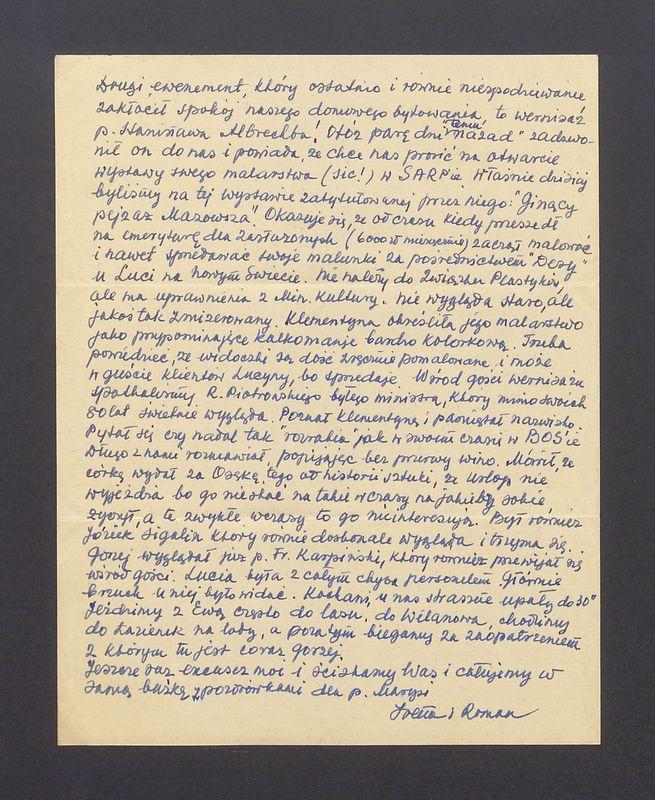 Drugi ewenement, który ostatnio i równie niespodziewanie
zakłócił spokój naszego domowego bytowania, to wernisaż
p. Stanisława Albrechta! Otóż parę dni "temu nazad" zadzwo-
nił on do nas i powiada, że chce nas prosić na otwarcie
wystawy swego malarstwa (sic!) w SARPie. Właśnie dzisiaj
byliśmy na tej wystawie zatytułowanej przez niego: "Ginący
pejzaż Mazowsza". Okazuje się, że od czasu kiedy przeszedł
na emeryturę dla zasłużonych (6000 zł miesięcznie) zaczął malować
i nawet sprzedawać swoje malunki za pośrednictwem "Desy"
u Luci na Nowym Świecie. Nie należy do Związku Plastyków,
ale ma uprawnienia z Min. Kultury. Nie wygląda staro, ale
jakoś tak zmizerowany. Klementyna określiła jego malarstwo
jako przypominające kalkomanię bardzo kolorkową. Trzeba
powiedzieć, że widoczki są dość zręcznie pomalowane i może
w guście klientów Lucyny, bo sprzedaje. Wśród gości wernisażu
spotkaliśmy R. Piotrowskiego byłego ministra, który mimo swoich
80 lat świetnie wygląda. Poznał Klementynę i pamiętał nazwisko.
Pytał się czy nadal tak "rozrabia" jak w swoim czasie w BOS'ie
Długo z nami rozmawiał, popijając bez przerwy wino. Mówił, że
córkę wydał za Osękę, tego od historii sztuki, że urlop nie
wyjeżdża bo go nie stać na takie wczasy na jakieby sobie
życzył, a te zwykłe wczasy to go nie interesują. Był również
Józiek Sigalin który równie doskonale wygląda i trzyma się.
Gorzej wyglądał już p. Fr. Karpiński, który również przewijał się
wśród gości. Lucia była z całym chyba personelem. Głównie
brzuch u niej było widać. Kochani, u nas straszne upały do 30°
Jeździmy z Ewą często do lasu, do Wilanowa, chodzimy
do Łazienek na lody, a poza tym biegamy za zaopatrzeniem
z którym tu jest coraz gorzej.
Jeszcze raz excusez moi i ściskamy Was i całujemy w
samą buźkę z pozdrówkami dla p. Marysi
i Roman